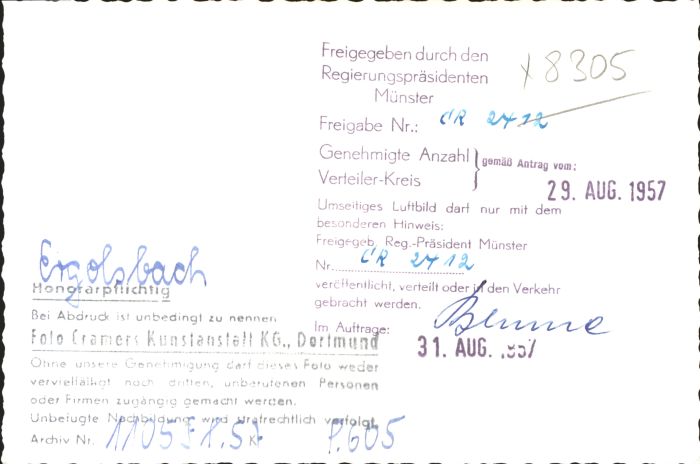 Freigegeben durch den
Regierungspräsidenten
Münster
x 8305
Freigabe Nr.: CR 2412
Genehmigte Anzahl
Verteiler-Kreis
} gemäß Antrag vom:
29. AUG. 1957
Umseitiges Luftbild darf nur mit dem
besonderen Hinweis:
Freigegeb. Reg.-Präsident Münster
Nr. CR 2412
veröffentlicht, verteilt oder in den Verkehr
gebracht werden.
Im Auftrage: Blume
31. AUG. 1957
Ergolsbach
Honorarpflichtig
Bei Abdruck ist unbedingt zu nennen
Foto Cramers Kunstanstalt KG., Dortmund
Ohne unsere Genehmigung darf dieses Foto weder
vervielfältigt noch dritten, unberufenen Personen
oder Firmen zugängig gemacht werden.
Unbefugte Nachbildung wird strafrechtlich verfolgt.
Archiv Nr. P.605